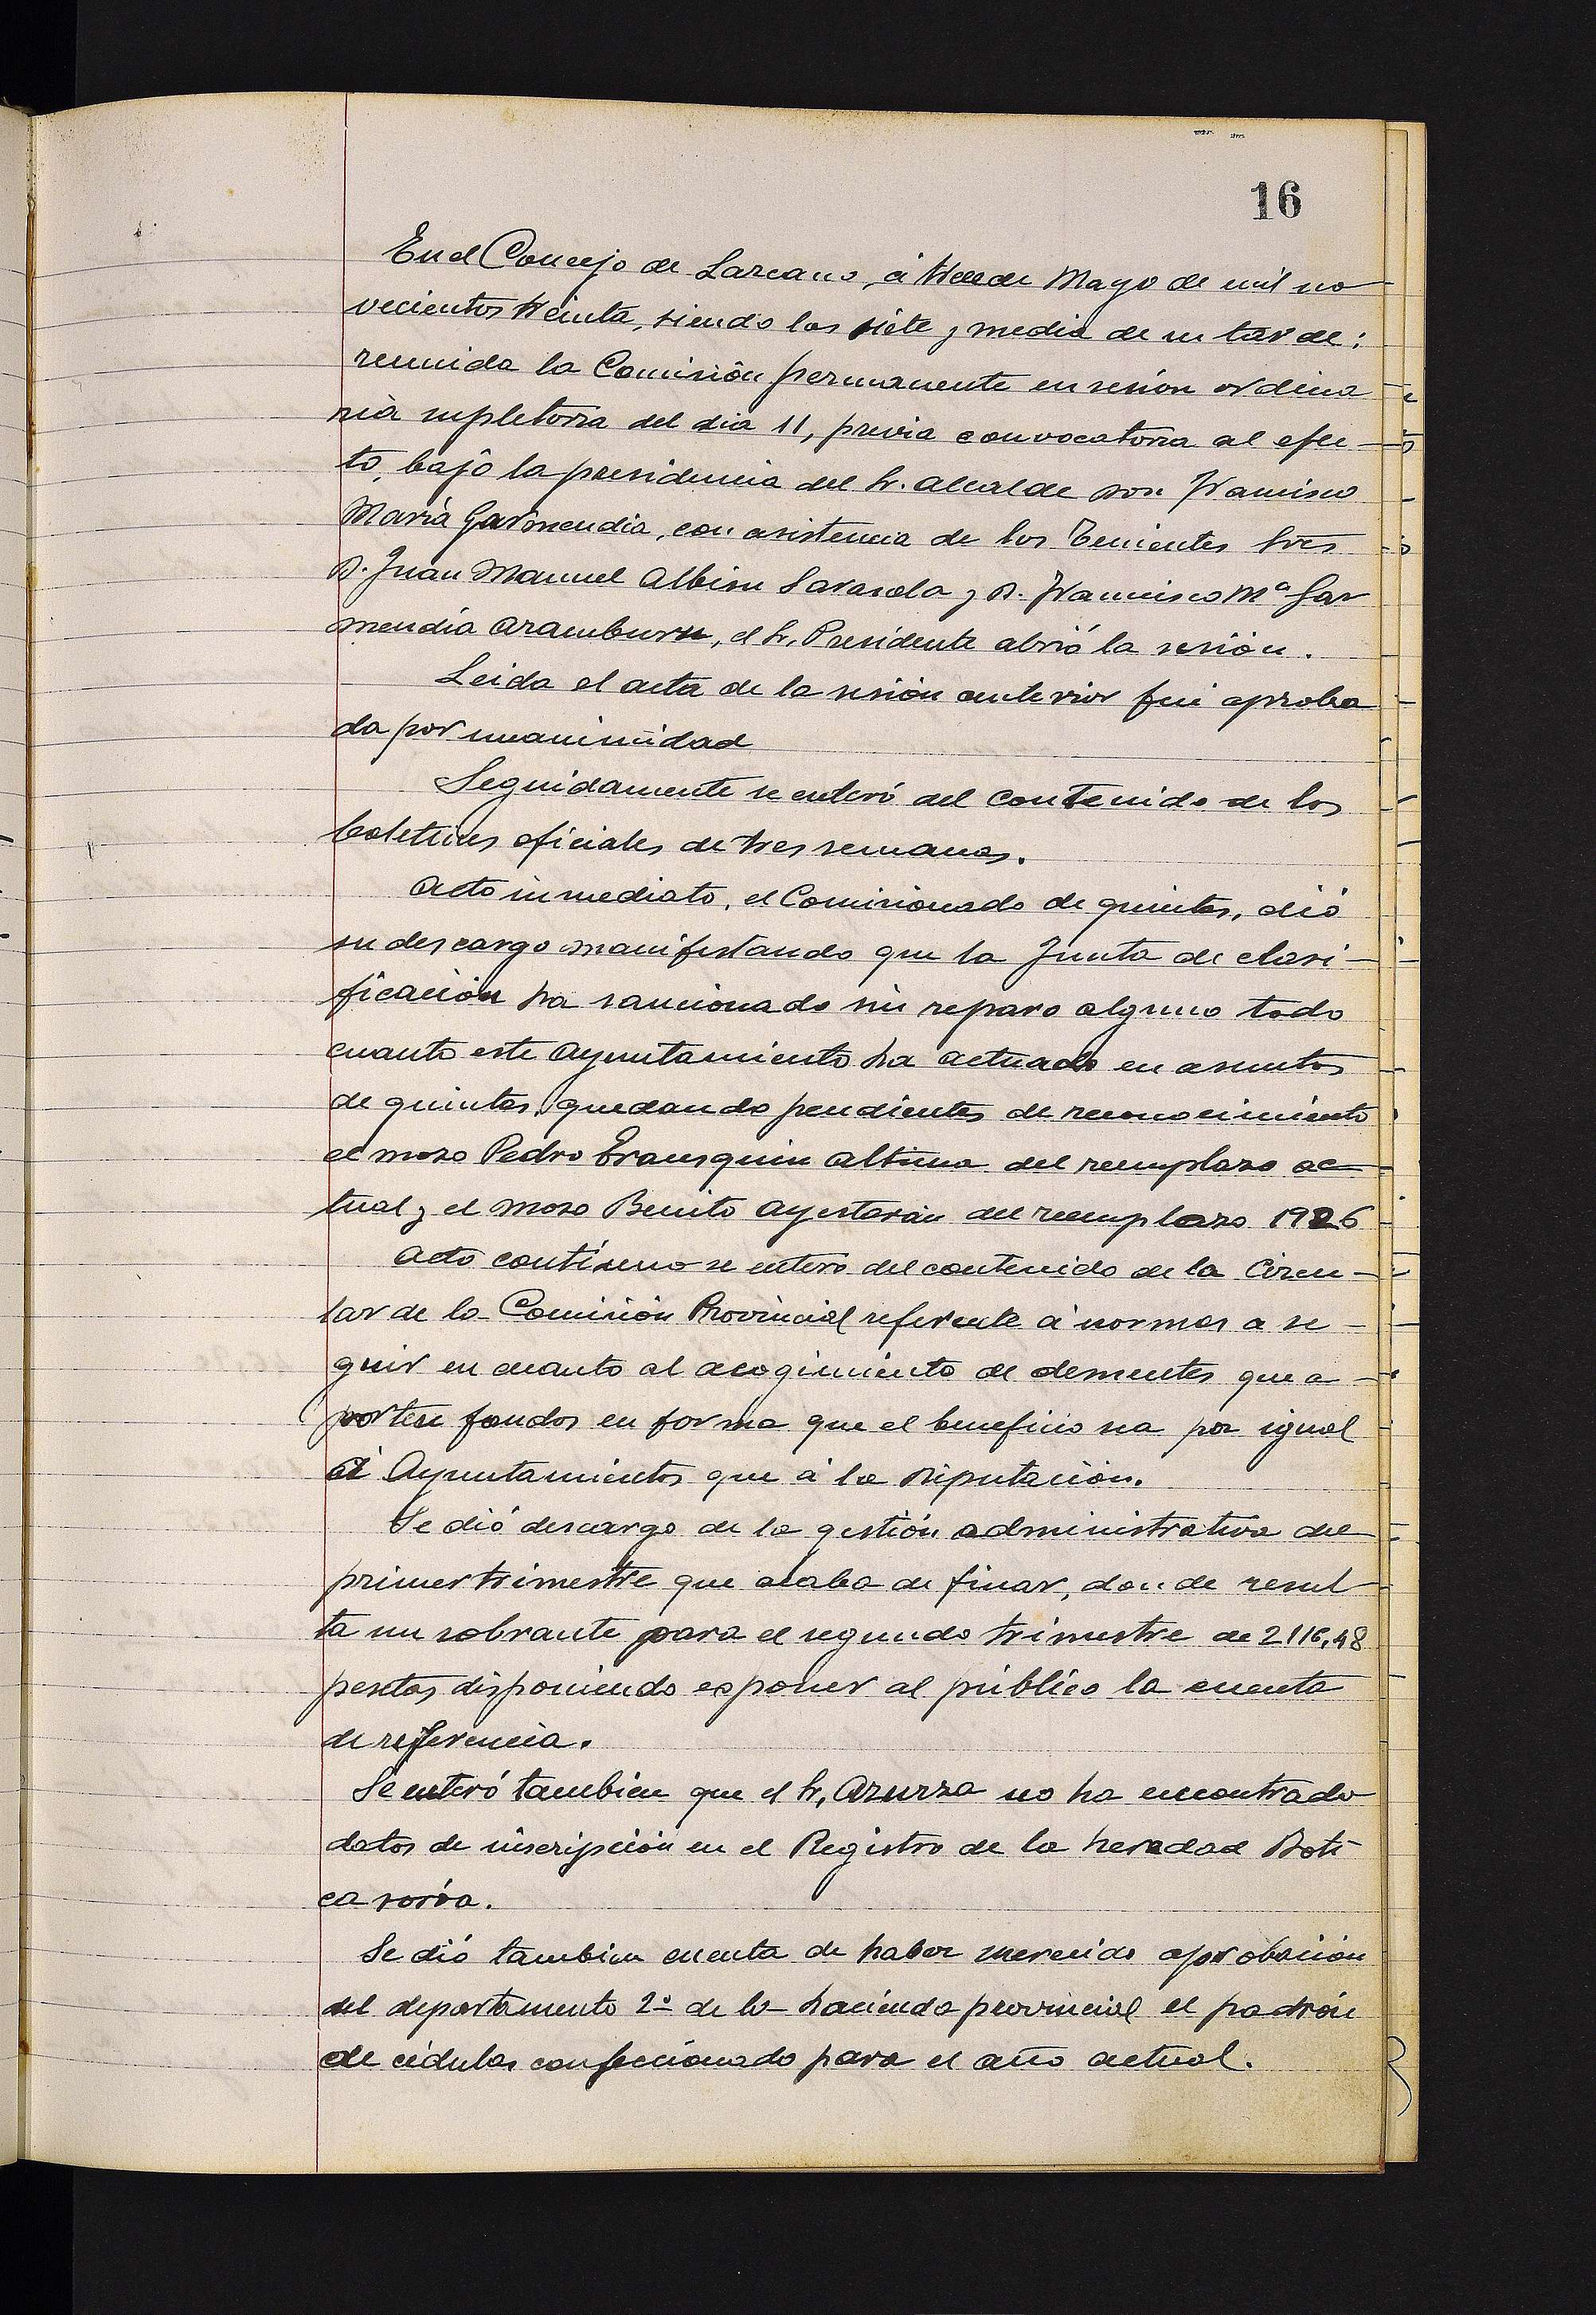 16
En el Concejo de Lazcano, á trece de Mayo de mil no
vecientos treinta, siendo las siete y media de su tarde:
reunida la Comisión permanente en sesion ordina
ria supletoria del dia 11, previa convocatoria al efec-
to, bajo la presidencia del Sr. Alcalde don Francisco
María Garmendia, con asistencia de los Tenientes Sres
D. Juan Manuel Albisu Sarasola y D. Francisco Mª Gar
mendia Aramburu, el Sr. Presidente abrió la sesión.
Leida el acta de la sesión anterior fué aproba
da por unanimidad
Seguidamente se enteró del contenido de los
boletines oficiales de tres semanas.
Acto inmediato, el Comisionado de quintas, dió
su descargo manifestando que la Junta de clasi-
ficación ha sancionado sin reparo alguno todo
cuanto este Ayuntamiento ha actuado en asuntos
de quintas, quedando pendientes de reconocimiento
el mozo Pedro Erausquin Altuna del reemplazo ac-
tual y el mozo Benito Ayestarán del reemplazo 1926
Acto contínuo se entero del contenido de la Circu-
lar de la Comisión Provincial referente á normas a se-
guir en cuanto al acogimiento de dementes que a-
porten fondos en forma que el beneficio sea por igual
á Ayuntamientos que á la Diputación.
Se dió descargo de la gestión administrativa del
primer trimestre que acaba de finar, donde resul
ta un sobrante para el segundo trimestre de 2116,48
pesetas disponiendo exponer al público la cuenta
de referencia.
Se enteró tambien que el Sr, Azurza no ha encontrado
datos de inscripción en el Registro de la heredad Boti
ca soroa.
Se dió tambien cuenta de haber merecido aprobación
del departamento 2º de la hacienda provincial el padrón
de cédulas confeccionado para el año actual.